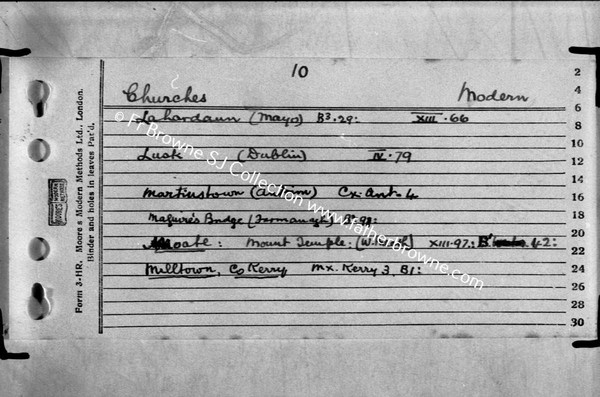 10
Churches Modern
Lahardaun (Mayo) B3.29: XIII.66
Lusk (Dublin) IV.79
Martinstown (Antrim) Cx. Ant. 4
Maguire's Bridge (Fermanagh)
Moate: Mount Temple: XIII.97.: 42:
Milltown, Co Kerry Mx. Kerry 3, B1:
2
4
6
8
10
12
14
16
18
20
22
24
26
28
30
Form 3-HR. Moore's Modern Methods Ltd., London.
Binder and holes in leaves Pat'd.
© Fr Browne SJ Collection www.FatherBrowne.com